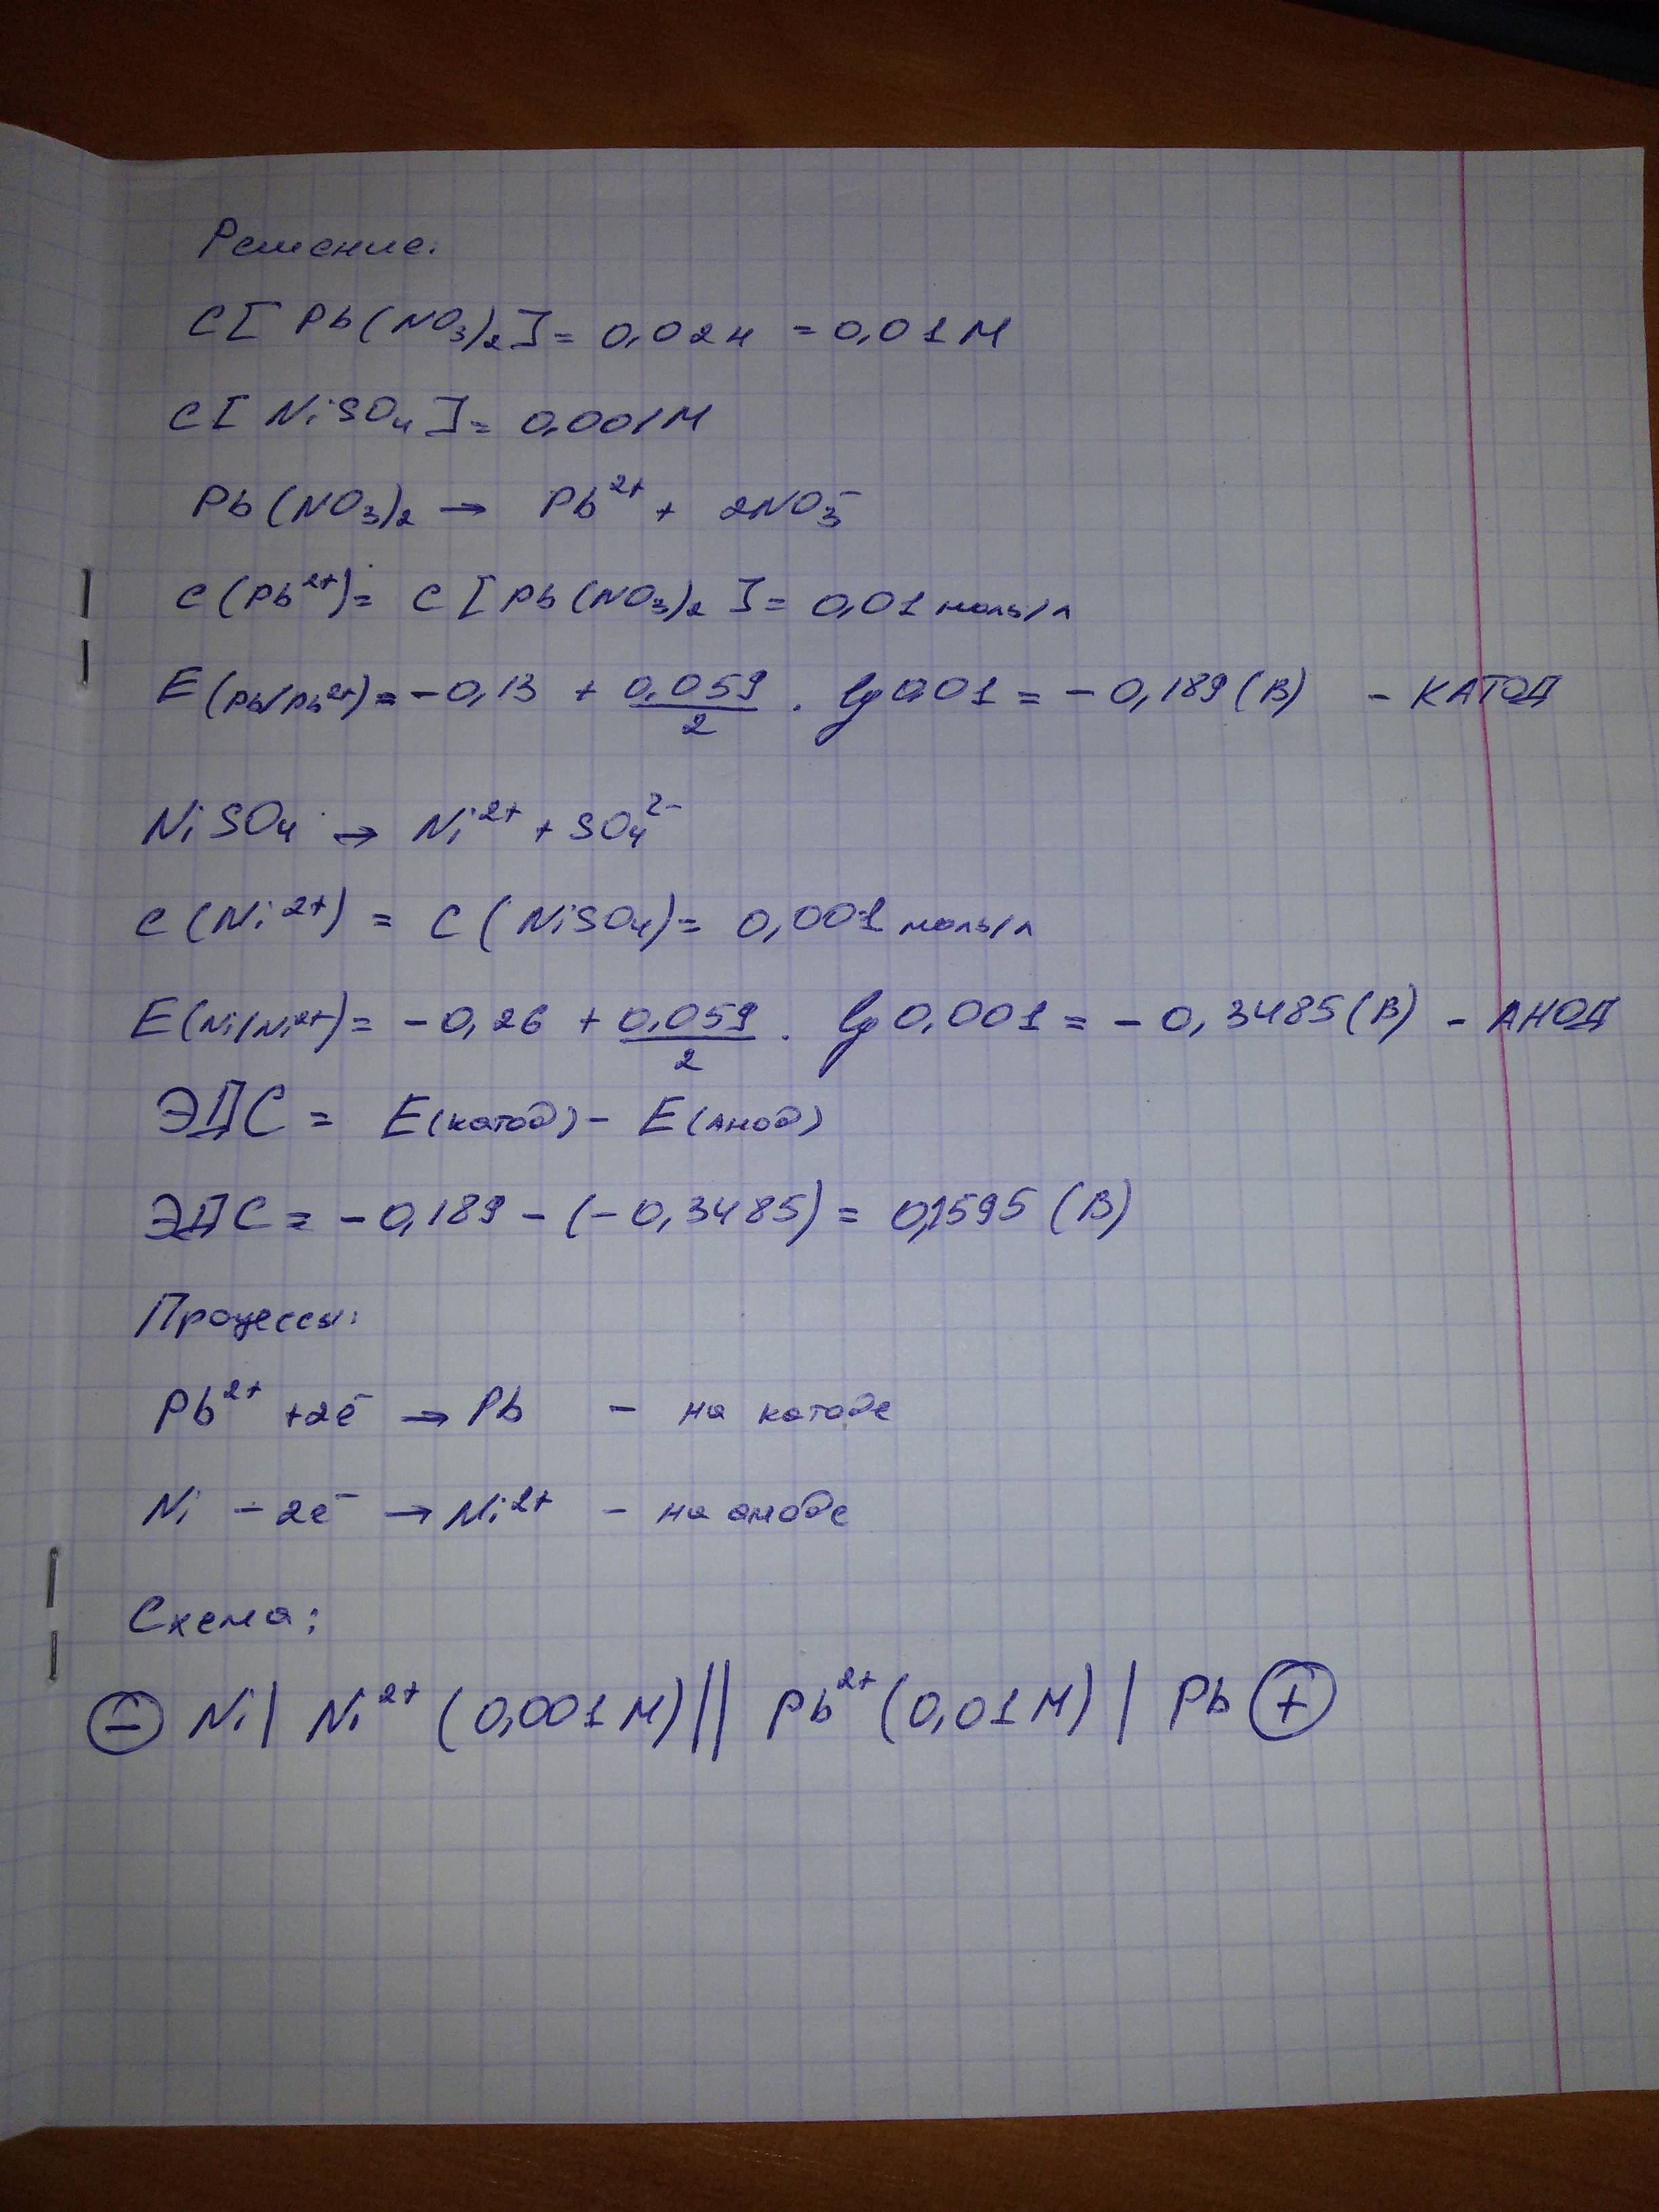 Решение:
C[Pb(NO₃)₂] = 0,02н = 0,01М
C[NiSO₄] = 0,001М
Pb(NO₃)₂ → Pb²⁺ + 2NO₃⁻
C(Pb²⁺) = C[Pb(NO₃)₂] = 0,01 моль/л
E(Pb/Pb²⁺) = -0,13 + 0,059/2 · lg 0,01 = -0,189 (В) - КАТОД
NiSO₄ → Ni²⁺ + SO₄²⁻
C(Ni²⁺) = C(NiSO₄) = 0,001 моль/л
E(Ni/Ni²⁺) = -0,26 + 0,059/2 · lg 0,001 = -0,3485 (В) - АНОД
ЭДС = E(катод) - E(анод)
ЭДС = -0,189 - (-0,3485) = 0,1595 (В)
Процессы:
Pb²⁺ +2e⁻ → Pb - на катоде
Ni - 2e⁻ → Ni²⁺ - на аноде
Схема:
⊖ Ni | Ni²⁺ (0,001М) || Pb²⁺ (0,01М) | Pb ⊕